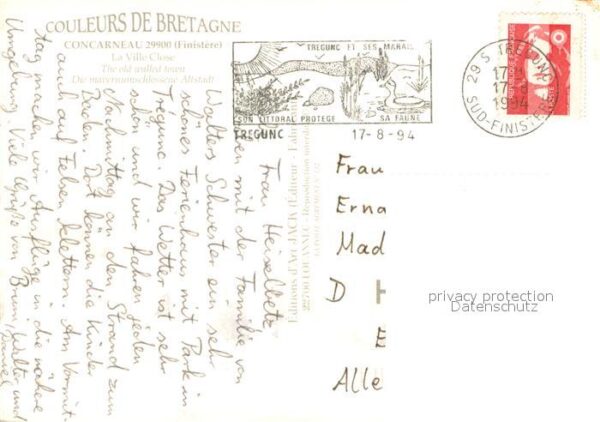 COULEURS DE BRETAGNE
CONCARNEAU 29900 (Finistère)
La Ville Close
The old walled town
Die mauerumschlossene Altstadt
TREGUNC ET SES MARAIS
SON LITTORAL PROTEGE
SA FAUNE
TREGUNC 17-8-94
29 S. TREGUNC
17 H
17-8
1994
SUD-FINISTERE
Editions d'Art JACK
Frau Heiselbetz,
haben mit der Familie von
Walters Schwester ein sehr
schönes Ferienhaus mit Park in
Trégunc. Das Wetter ist sehr
schön und wir fahren jeden
Nachmittag an den Strand zum
Baden. Dort können die Kinder
auch auf Felsen klettern. Am Vormit-
tag machen wir Ausflüge in die nähere
Umgebung. Viele Grüße von Bruni, Walter und
Daniel
Frau
Erna
Mad
D H
E
Alle
privacy protection
Datenschutz